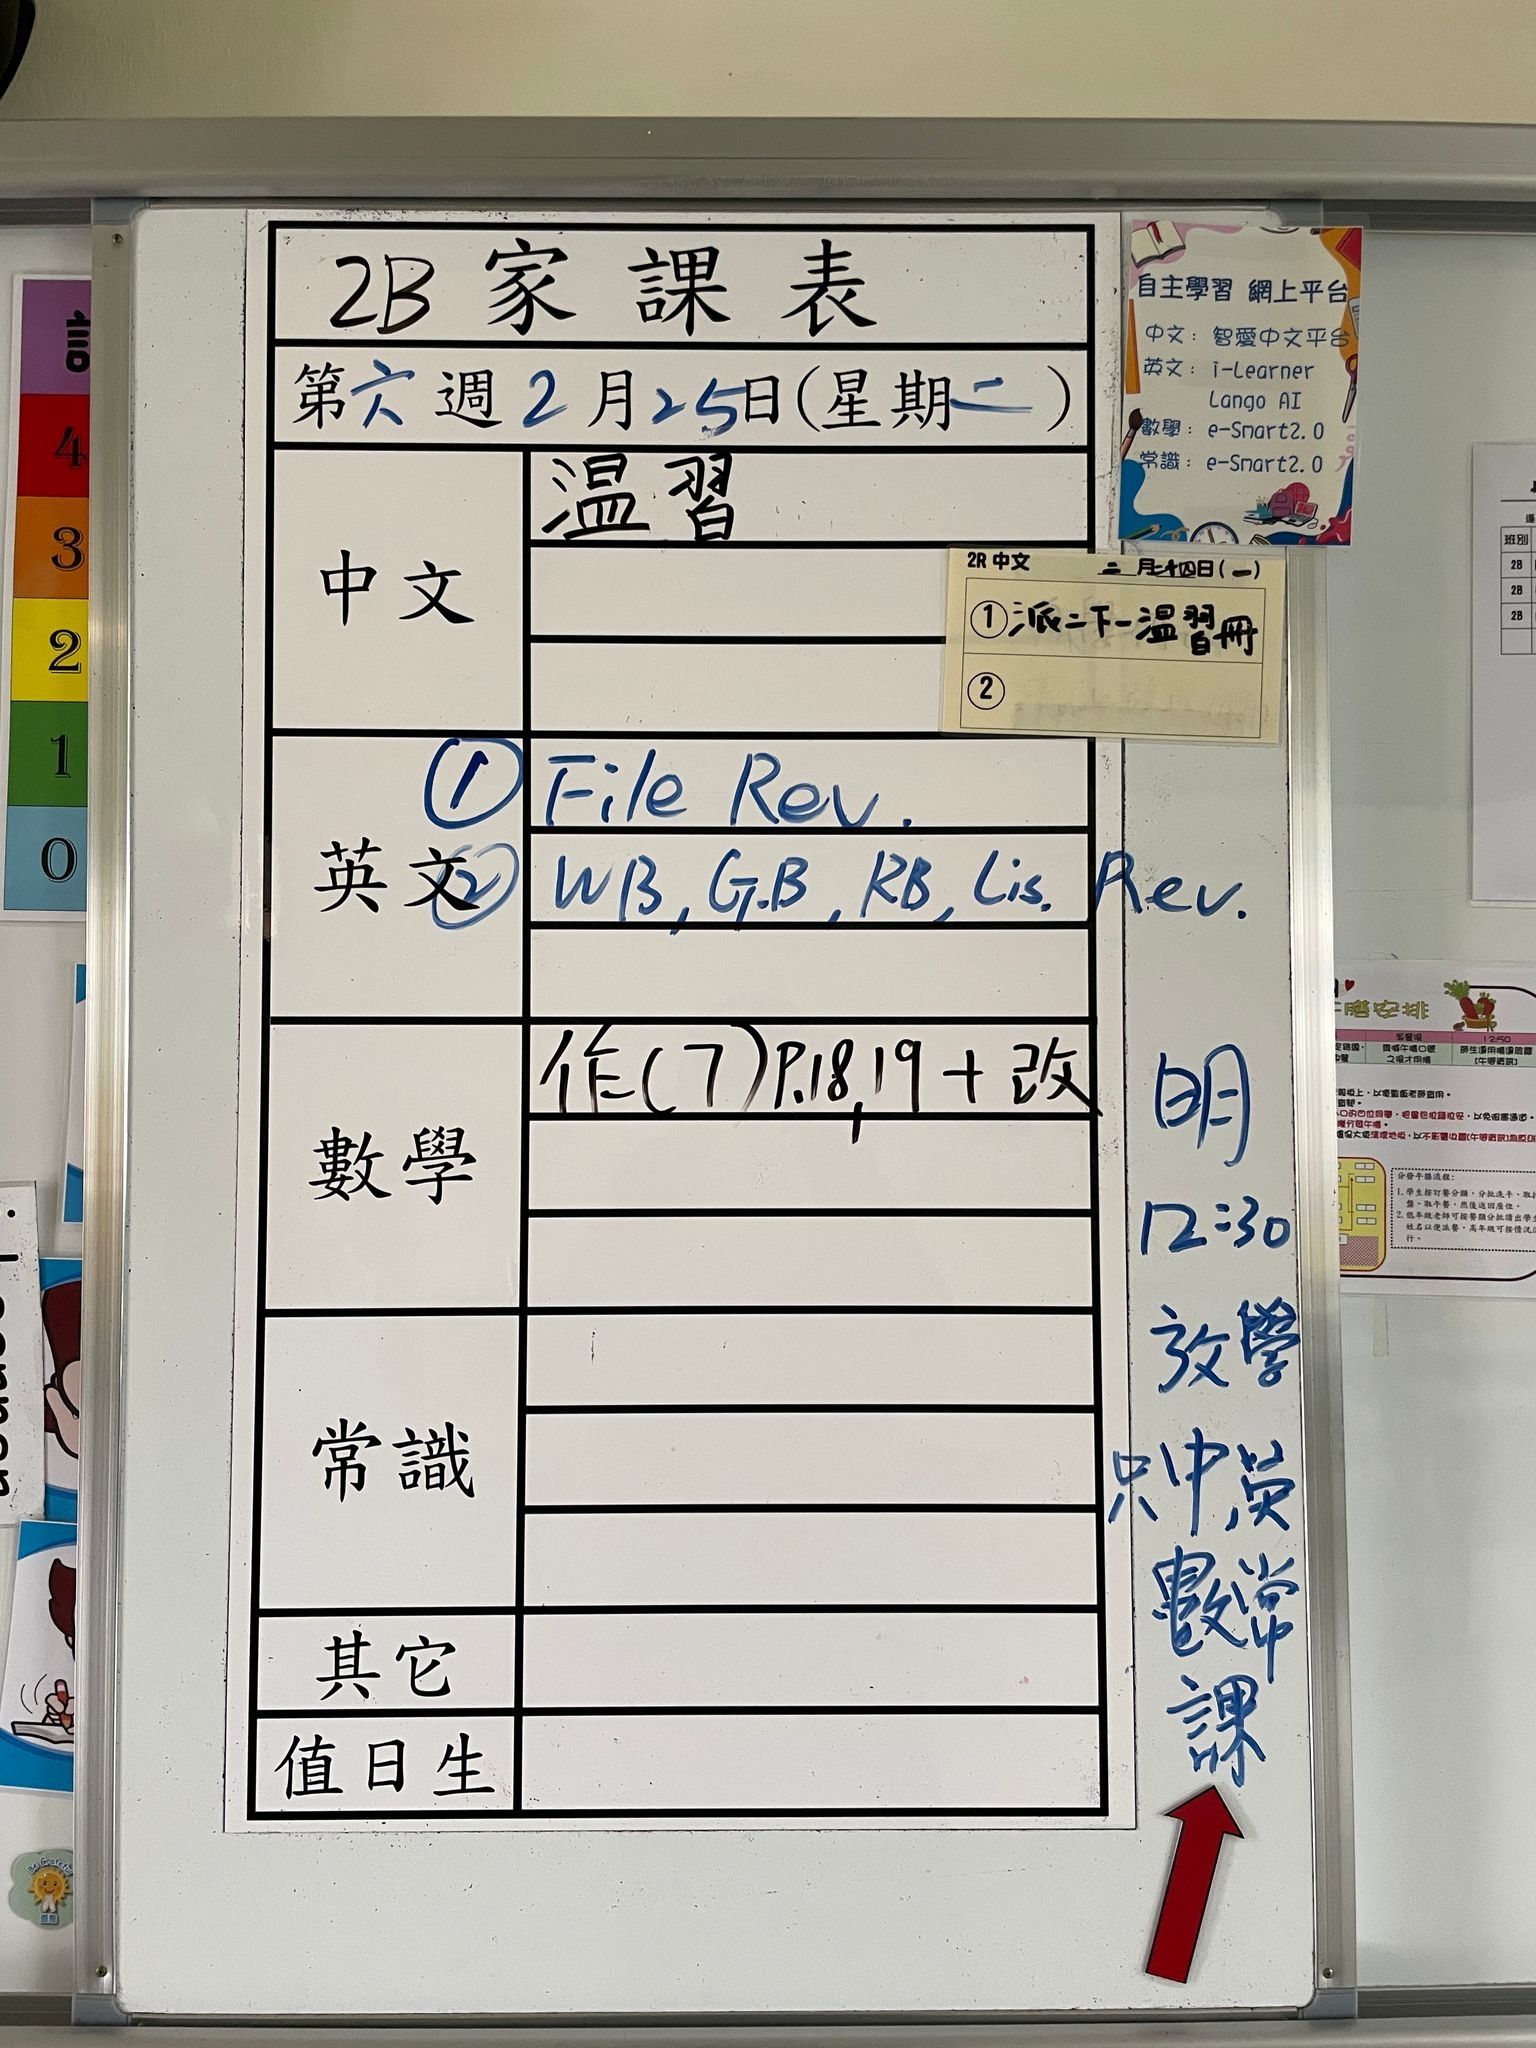 2B 家課表
第六週2月25日(星期二)
中文
温習
英文
① File Rev.
② WB, G.B, RB, Lis. Rev.
數學
作(7)P.18,19 + 改
常識
其它
值日生
自主學習 網上平台
中文: 智愛中文平台
英文: i-Learner
Lango AI
數學: e-Smart2.0
常識: e-Smart2.0
2R 中文 二月廿四日(一)
① 派二下一温習冊
②
明
12:30
放學
只中,英
數常
課
4
3
2
1
0
班別
2B
2B
2B
午膳安排
12:50
分發午膳流程:
Be Grateful